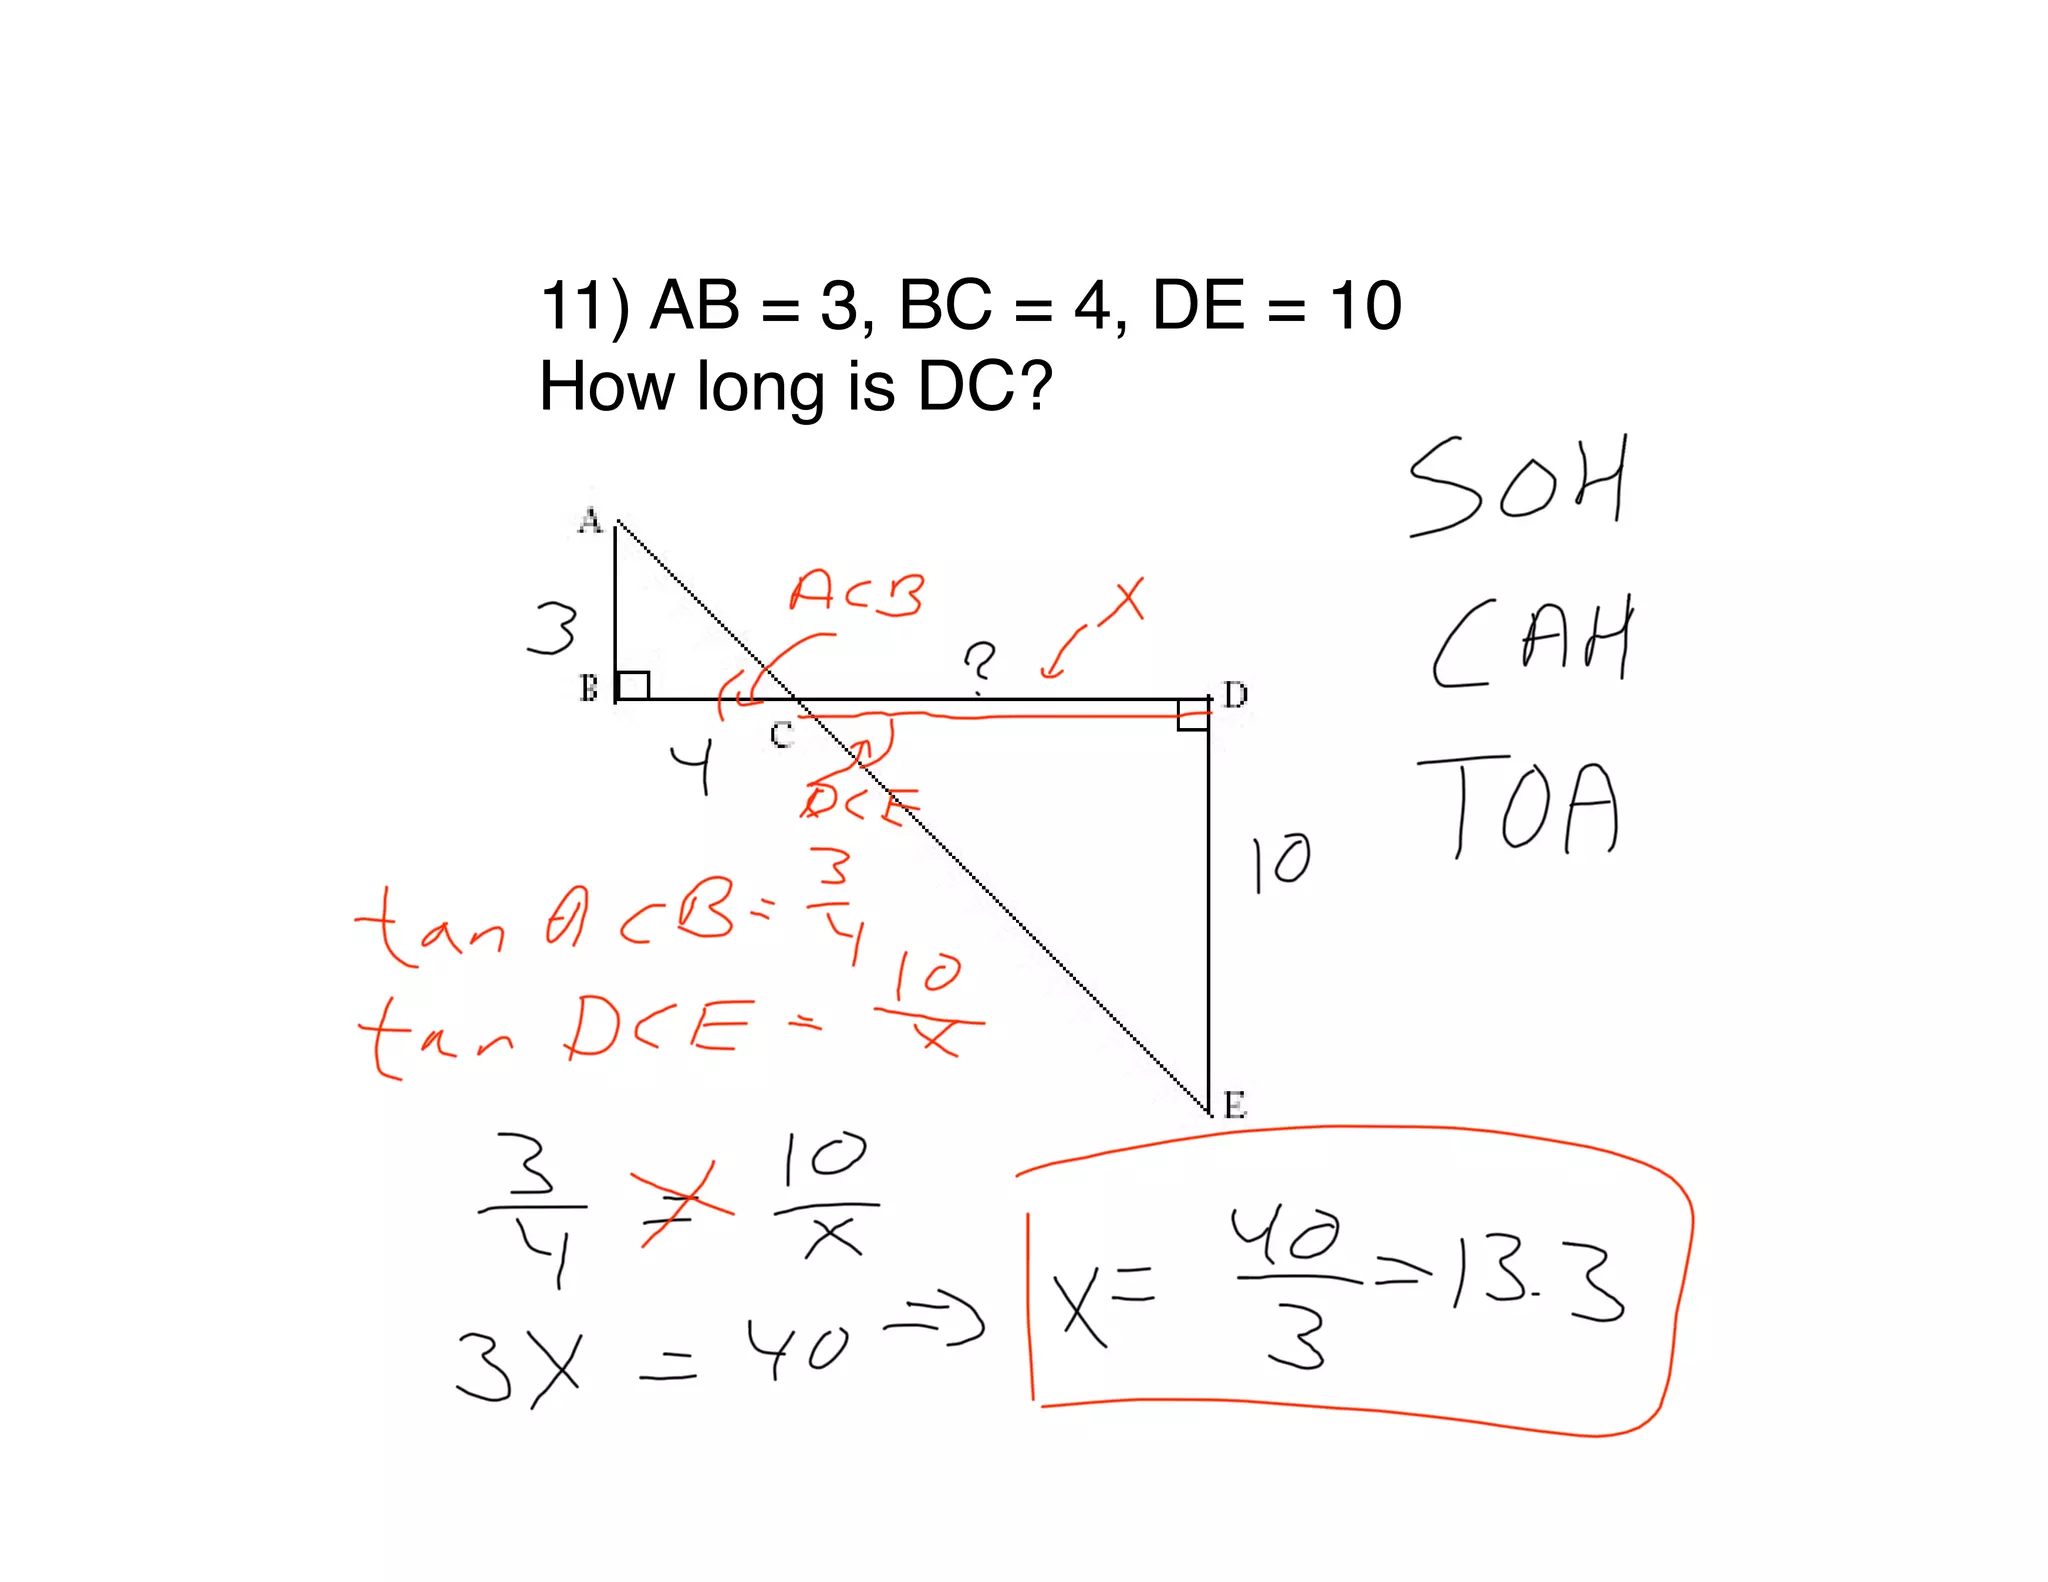 11) AB = 3, BC = 4, DE = 10
How long is DC?
SOH
CAH
TOA
A
ACB
X
3
?
B
D
C
4
DCE
10
tan ACB = 3/4
tan DCE = 10/x
E
3/4 = 10/x
3X = 40 => X = 40/3 = 13.3